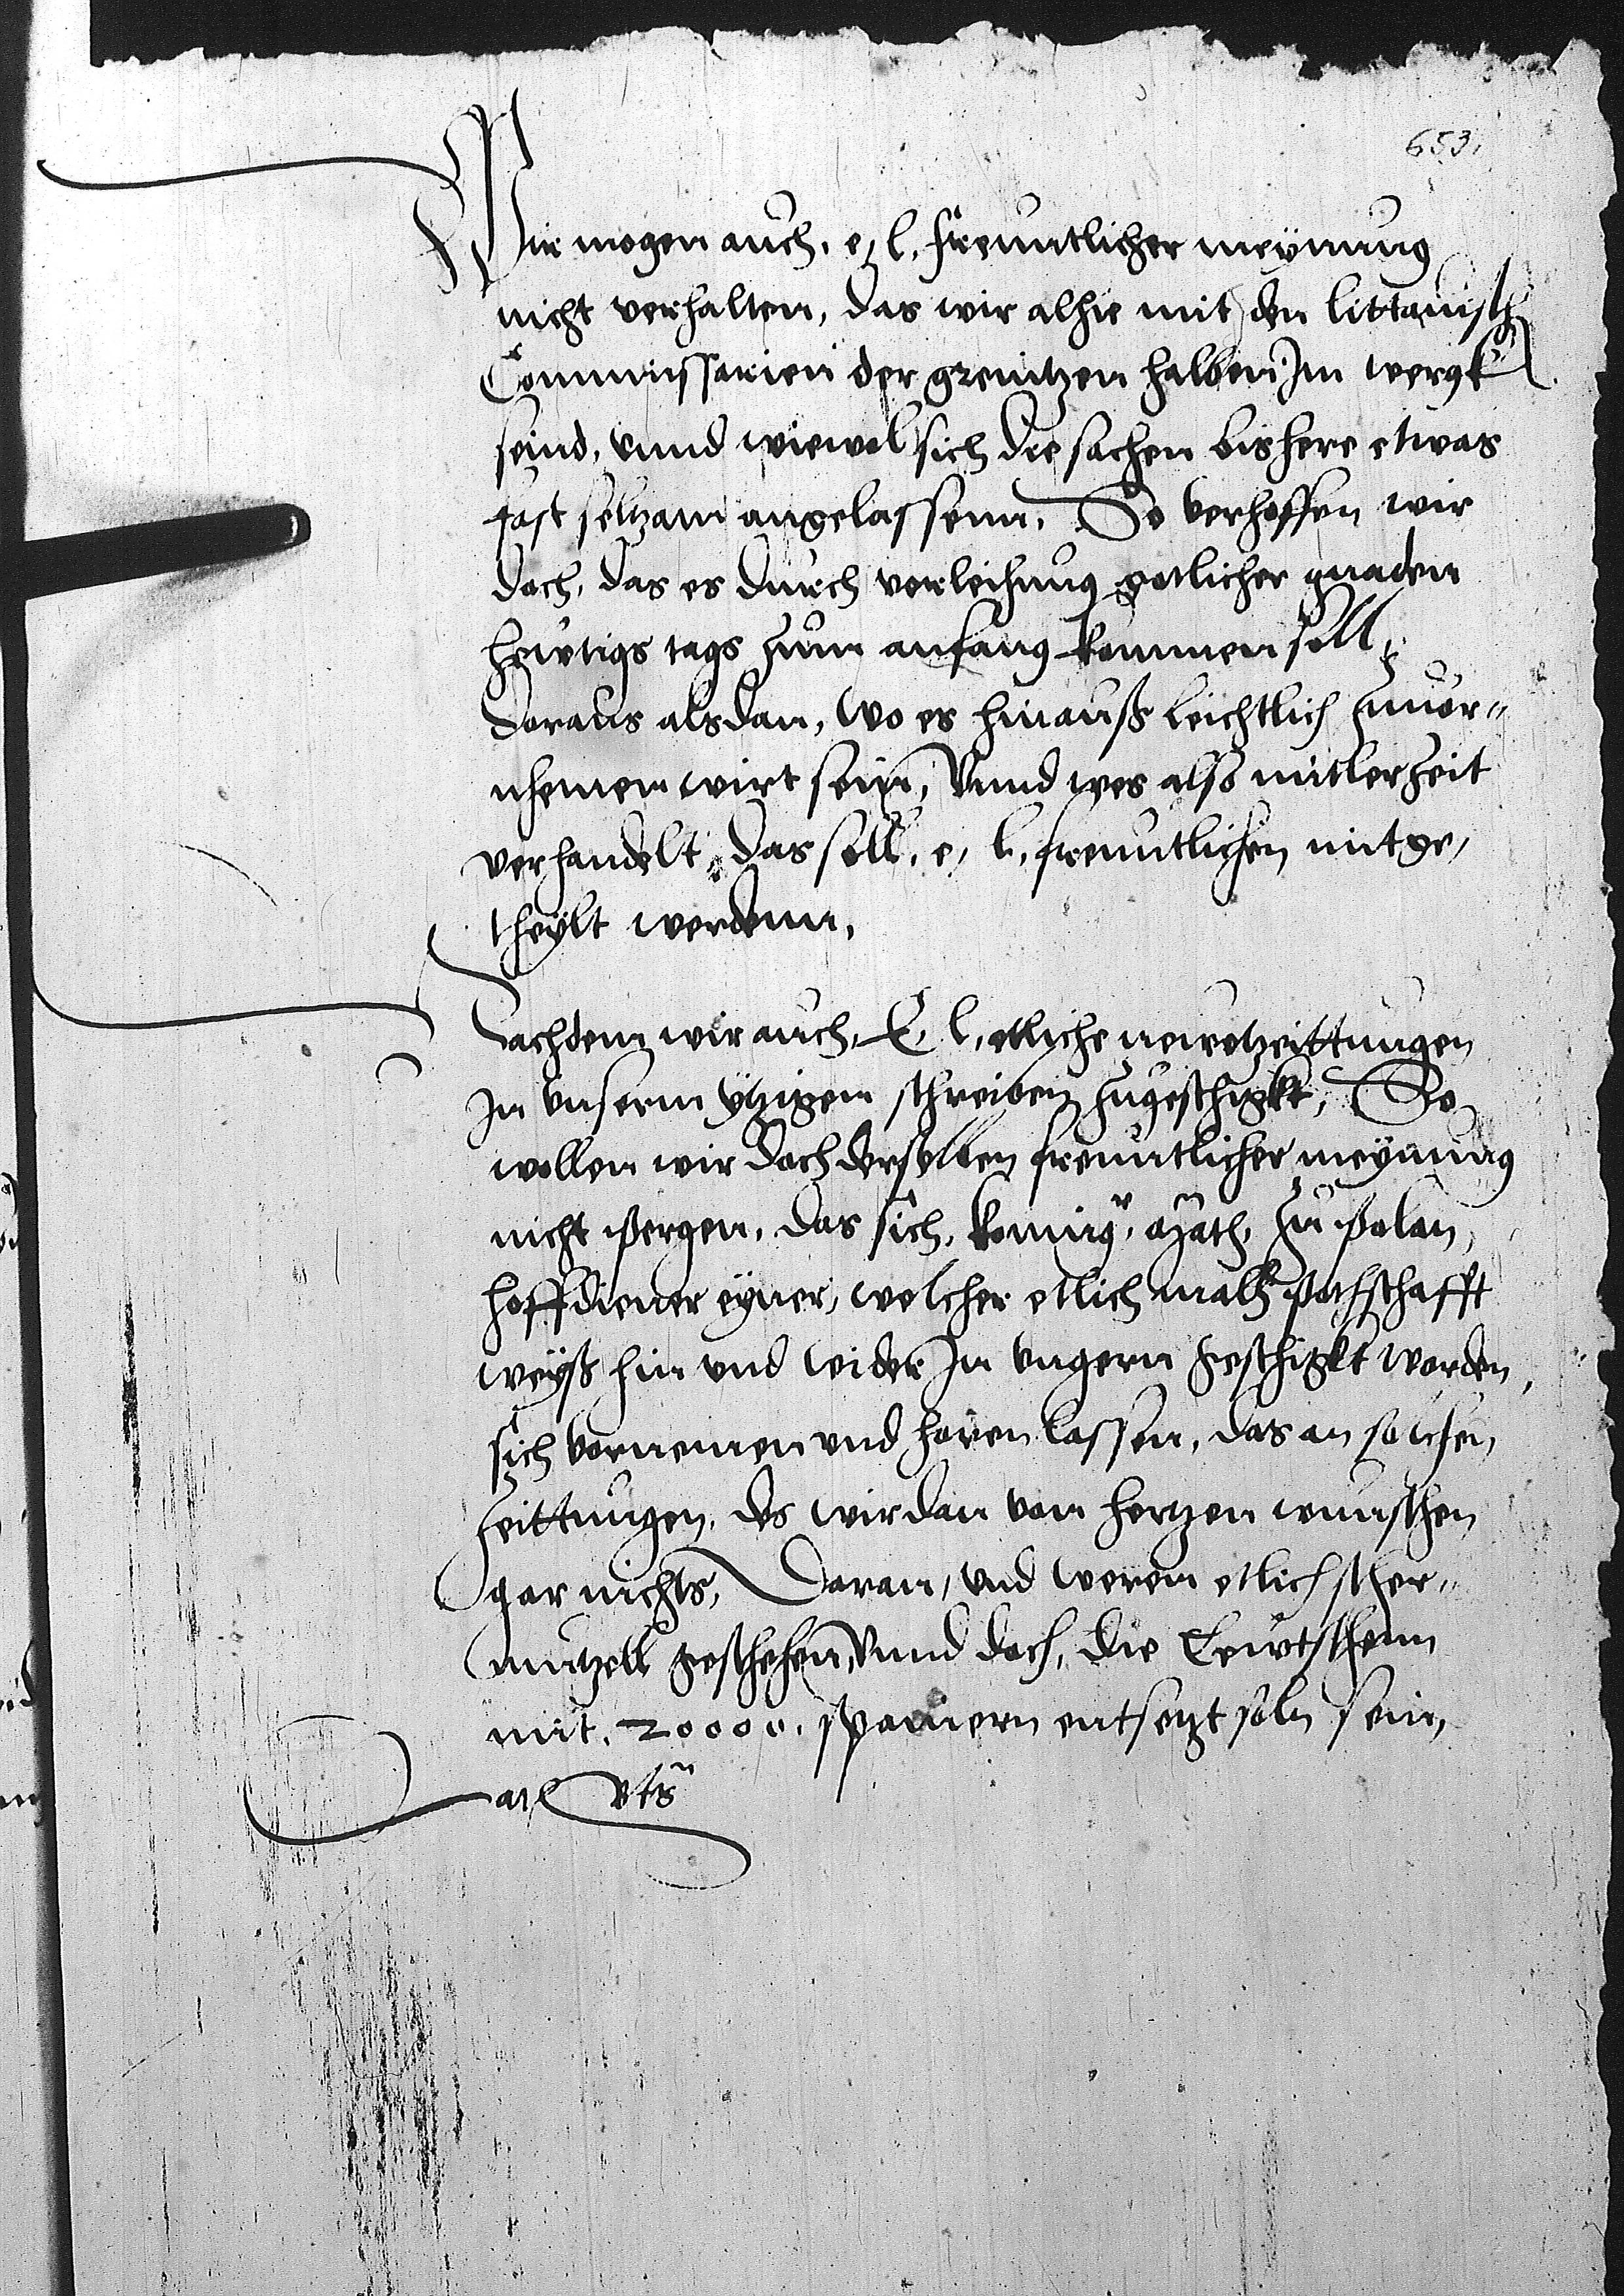 653.
Wir mogen auch, e, l, freuntlicher meynung
nicht verhalten, das wir alhie mit den littauisch
Commissarien der grenitzen halben Im wergk
seind, vnnd wiewol sich die sachen bishere etwas
fast seltzam angelassenn, So verhoffen wir
doch, das es durch vorleihung gotlicher gnaden
hewtigs tags zum anfang kommen soll,
Doraus alsdan, wo es hinauß leichtlich zuuor„
nhemen wirt sein, Vnnd wes also mitlerzeit
verhandelt, das soll, e, l, freuntlichen mitge,
theylt werdenn,
Nachdem wir auch, E, l, etliche newetzeittungen
In vnserm ytzigem schreiben zugeschigkt, So
wollen wir doch derselben freuntlicher meynung
nicht pergen, das sich, konigr, Math, zu polan,
hoffdiener eyner, welcher etlich malh potschafft
weyß hin vnd wider In vngern geschigkt worden,
sich vornemen vnd horen lassen, das an solchen
zeittungen, des wir dan von hertzen wunschen
gar nichts, Daran, vnd weren etlich scher„
mutzell geschehen, Vnnd doch, die Tewtschenn
mit, 20000, spaniern entsetzt soln sein,
Dat vts